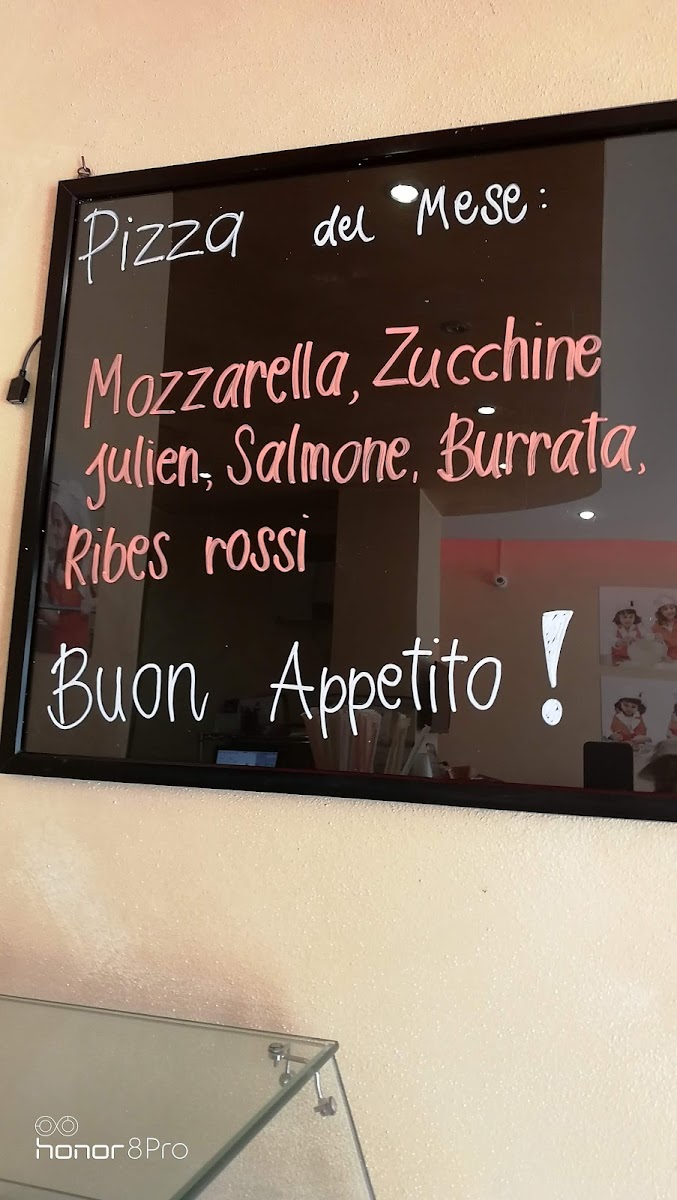 Pizza del Mese:
Mozzarella, Zucchine
Julien, Salmone, Burrata,
Ribes rossi
Buon Appetito!
honor 8Pro